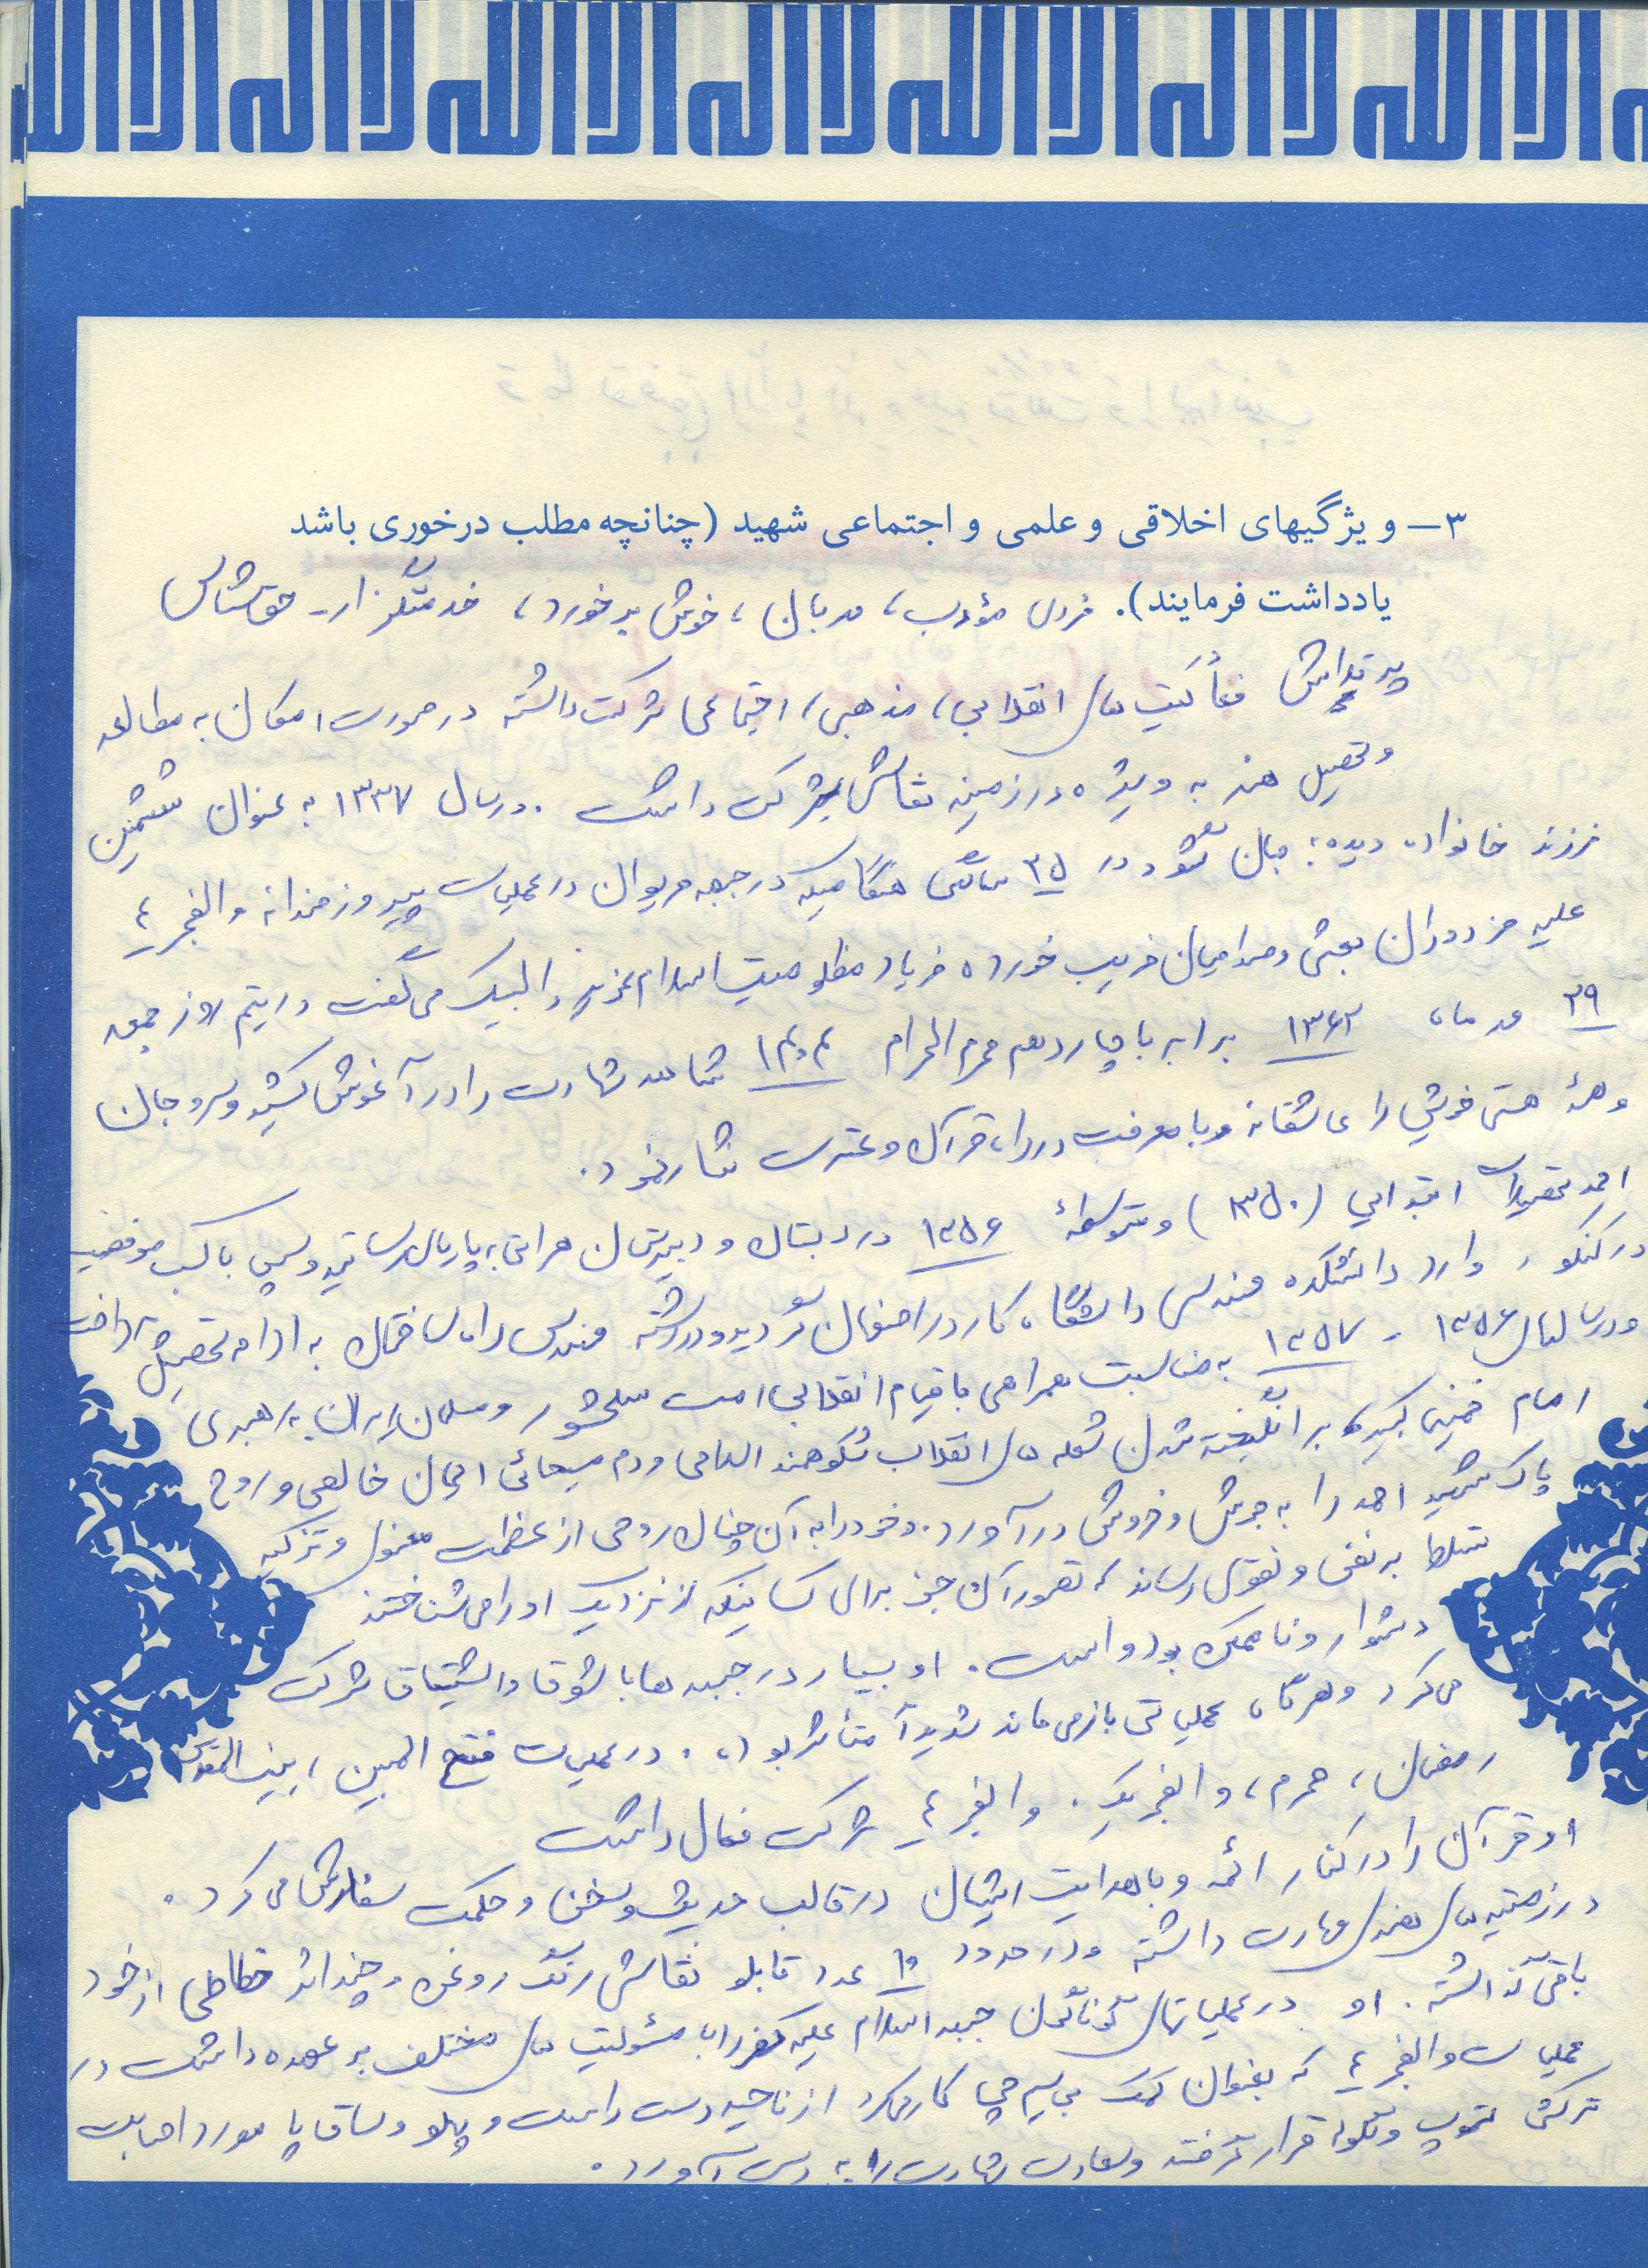 لا اله الا الله لا اله الا الله لا اله الا الله لا اله الا الله
۳ــ ویژگیهای اخلاقی و علمی و اجتماعی شهید (چنانچه مطلب درخوری باشد
یادداشت فرمایند). فردی مؤدب، مهربان، خوش برخورد، خدمتگزار - حق شناس
پر تلاش فعالیت های انقلابی، مذهبی، اجتماعی شرکت داشته در صورت امکان به مطالعه
و تحصیل هنر به ویژه در زمینه نقاشی شرکت داشت. در سال ۱۳۳۷ به عنوان ششمین
فرزند خانواده دیده به جهان گشود در ۲۵ سالگی هنگامیکه در جبهه مریوان در عملیات پیروزمندانه والفجر ٤
علیه مزدوران بعثی و صدامیان فریب خورده فریاد مظلومیت اسلام عزیز را لبیک می گفت در روز جمعه
۲۹ مهر ماه ۱۳۶۲ برابر با چهاردهم محرم الحرام ۱۴۰۴ شاهد شهادت را در آغوش کشید و سر و جان
و همهٔ هستی خویش را عاشقانه و با معرفت در راه قرآن و عترت نثار نمود.
احمد تحصیلات ابتدایی (۱۳۵۰) و متوسطهٔ ۱۳۵۶ در دبستان و دبیرستان هراتی به پایان رسانید و سپس با کسب موفقیت
در کنکور وارد دانشکده مهندسی دانشگاه کار در اصفهان گردید و در رشته مهندسی راه ساختمان به ادامه تحصیل پرداخت
و در سالهای ۱۳۵۶ - ۱۳۵۷ به مناسبت همراهی با قیام انقلابی امت سلحشور و مسلمان ایران به رهبری
امام خمینی کبیر، برانگیخته شدن شعله های انقلاب شکوهمند اسلامی و دم مسیحائی ایمان خالص و روح
پاک شهید احمد را به جوش و خروش درآورد. و خود را به آن چنان روحی از عظمت معنوی و تزکیه
تسلط بر نفس و تقوی رساند که تصور آن جز برای کسانیکه از نزدیک او را می شناختند
دشوار و ناممکن بود و است. او بسیار در جبهه ها با شوق و اشتیاق شرکت
می کرد و هر گاه عملیاتی باز می ماند شدیداً متأثر بود. در عملیات فتح المبین، بیت المقدس
رمضان، محرم، والفجر یک. والفجر ٤ شرکت فعال داشت
او قرآن را در کنار ائمه و با هدایت ایشان در قالب حدیث و سخن و حکمت سفارش می کرد.
در زمینه های هنری مهارت داشته و در حدود ۱۰ عدد تابلو نقاشی رنگ روغن و چند اثر خطاطی از خود
باقی گذاشته. او در عملیاتهای گوناگون جبهه اسلام علیه کفر را با مسئولیت های مختلف بر عهده داشت در
عملیات والفجر ٤ که بعنوان کمک بی سیم چی کار میکرد از ناحیه دست راست و پهلو و ساق پا مورد اصابت
ترکش توپ و گلوله قرار گرفته و سعادت شهادت را به دست آورد.